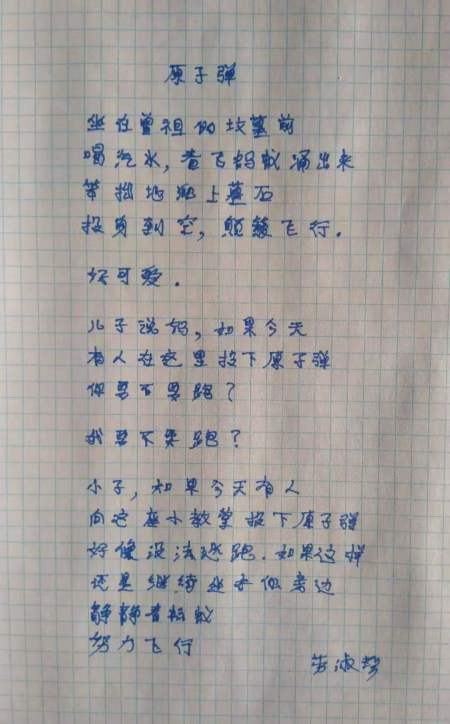 原子弹
坐在曾祖的坟墓前
喝汽水,看飞蚂蚁涌出来
笨拙地爬上墓石
投身到空,颠簸飞行.
好可爱.
儿子说妈,如果今天
有人在这里投下原子弹
你要不要跑?
我要不要跑?
小子,如果今天有人
向这座小教堂投下原子弹
好像没法逃跑.如果这样
还是继续坐在你旁边
静静看蚂蚁
努力飞行